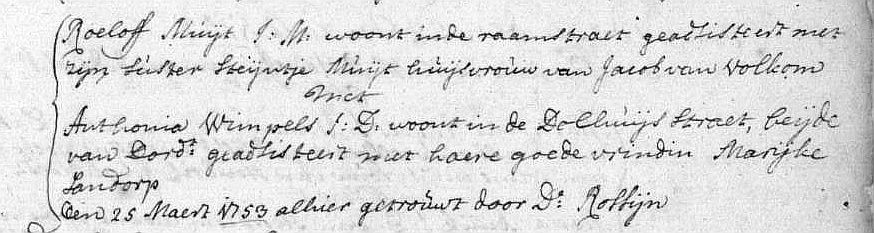 Roeloff Muijt J: M: woont inde raamstraet geadsisteert met
zijn suster Steijntje Muijt huijsvrouw van Jacob van Volkom
met
Anthonia Wimpels J: D: woont in de Dolhuijs straet, beijde
van Dordt geadsisteert met haere goede vrindin Marijke
Landorp
den 25 Maert 1753 alhier getrouwt door Ds Rossijn